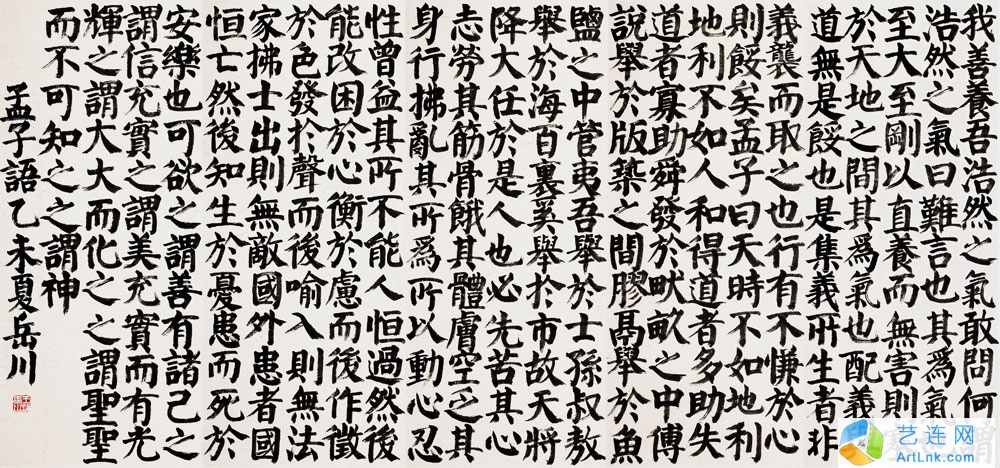 我善養吾浩然之氣敢問何謂
浩然之氣曰難言也其爲氣
至大至剛以直養而無害則塞
於天地之間其爲氣也配義
道無是餒也是集義所生者非
義襲而取之也行有不慊於心
則餒矣孟子曰天時不如地利
地利不如人和得道者多助失
道者寡助舜發於畎畝之中傅
說舉於版築之間膠鬲舉於魚
鹽之中管夷吾舉於士孫叔敖
舉於海百裏奚舉於市故天將
降大任於是人也必先苦其心
志勞其筋骨餓其體膚空乏其
身行拂亂其所爲所以動心忍
性曾益其所不能人恒過然後
能改困於心衡於慮而後作徵
於色發於聲而後喻入則無法
家拂士出則無敵國外患者國
恒亡然後知生於憂患而死於
安樂也可欲之謂善有諸己之
謂信充實之謂美充實而有光
輝之謂大大而化之之謂聖聖
而不可知之之謂神
孟子語乙未夏岳川
艺连网
ArtLnk.com